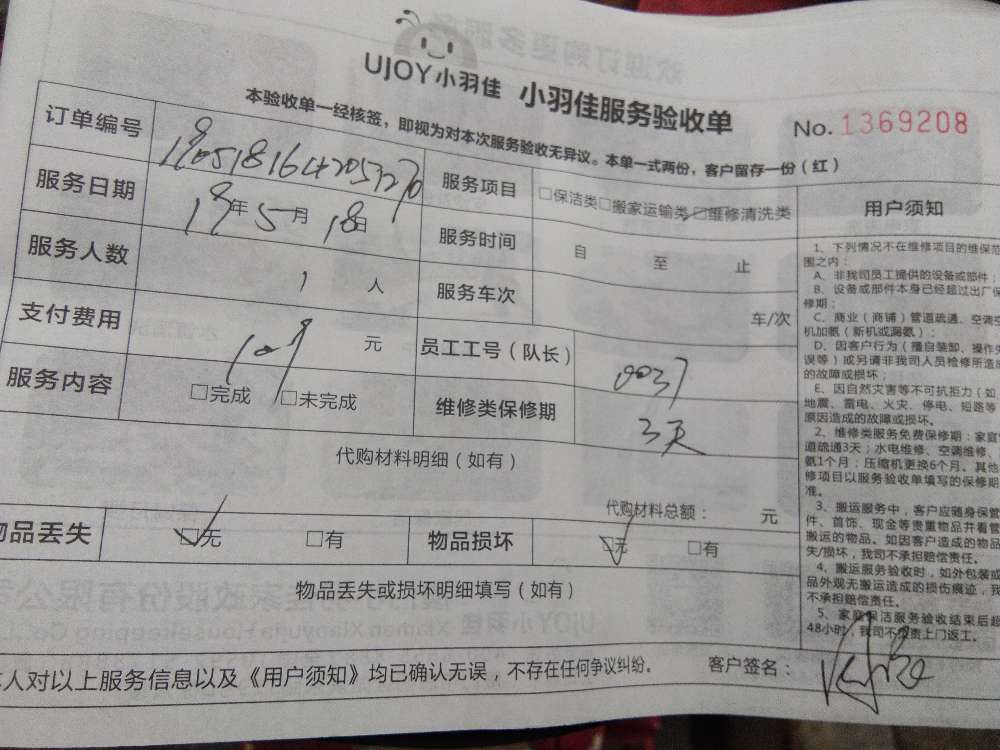 UJOY小羽佳 小羽佳服务验收单
No. 1369208
本验收单一经核签，即视为对本次服务验收无异议。本单一式两份，客户留存一份（红）
订单编号
服务项目 □保洁类□搬家运输类□维修清洗类
服务日期 19年5月18日
服务时间 自 至 止
服务人数 1人
服务车次 车/次
支付费用 109元
员工工号（队长） 0037
服务内容 □完成 □未完成
维修类保修期 3天
代购材料明细（如有）
代购材料总额： 元
物品丢失 □无 □有
物品损坏 □无 □有
物品丢失或损坏明细填写（如有）
人对以上服务信息以及《用户须知》均已确认无误，不存在任何争议纠纷。
客户签名：
用户须知
1、下列情况不在维修项目的维保范
围之内：
A、非我司员工提供的设备或部件；
B、设备或部件本身已经超过出厂保
修期；
C、商业（商铺）管道疏通、空调空
机加氨（新机或漏氨）；
D、因客户行为（擅自装卸、操作失
误等）或另请非我司人员检修所造成
的故障或损坏；
E、因自然灾害等不可抗拒力（如
地震、雷电、火灾、停电、短路等
原因造成的故障或损坏。
2、维修类服务免费保修期：家庭管
道疏通3天；水电维修、空调维修、
氨1个月；压缩机更换6个月。其他
修项目以服务验收单填写的保修期
准。
3、搬运服务中，客户应随身保管
件、首饰、现金等贵重物品并看管
搬运的物品。如因客户造成的物品
失/损坏，我司不承担赔偿责任。
4、搬运服务验收时，如外包装或
品外观无搬运造成的损伤痕迹，我
不承担赔偿责任。
5、家庭保洁服务验收结束后超
48小时，我司不负责上门返工。